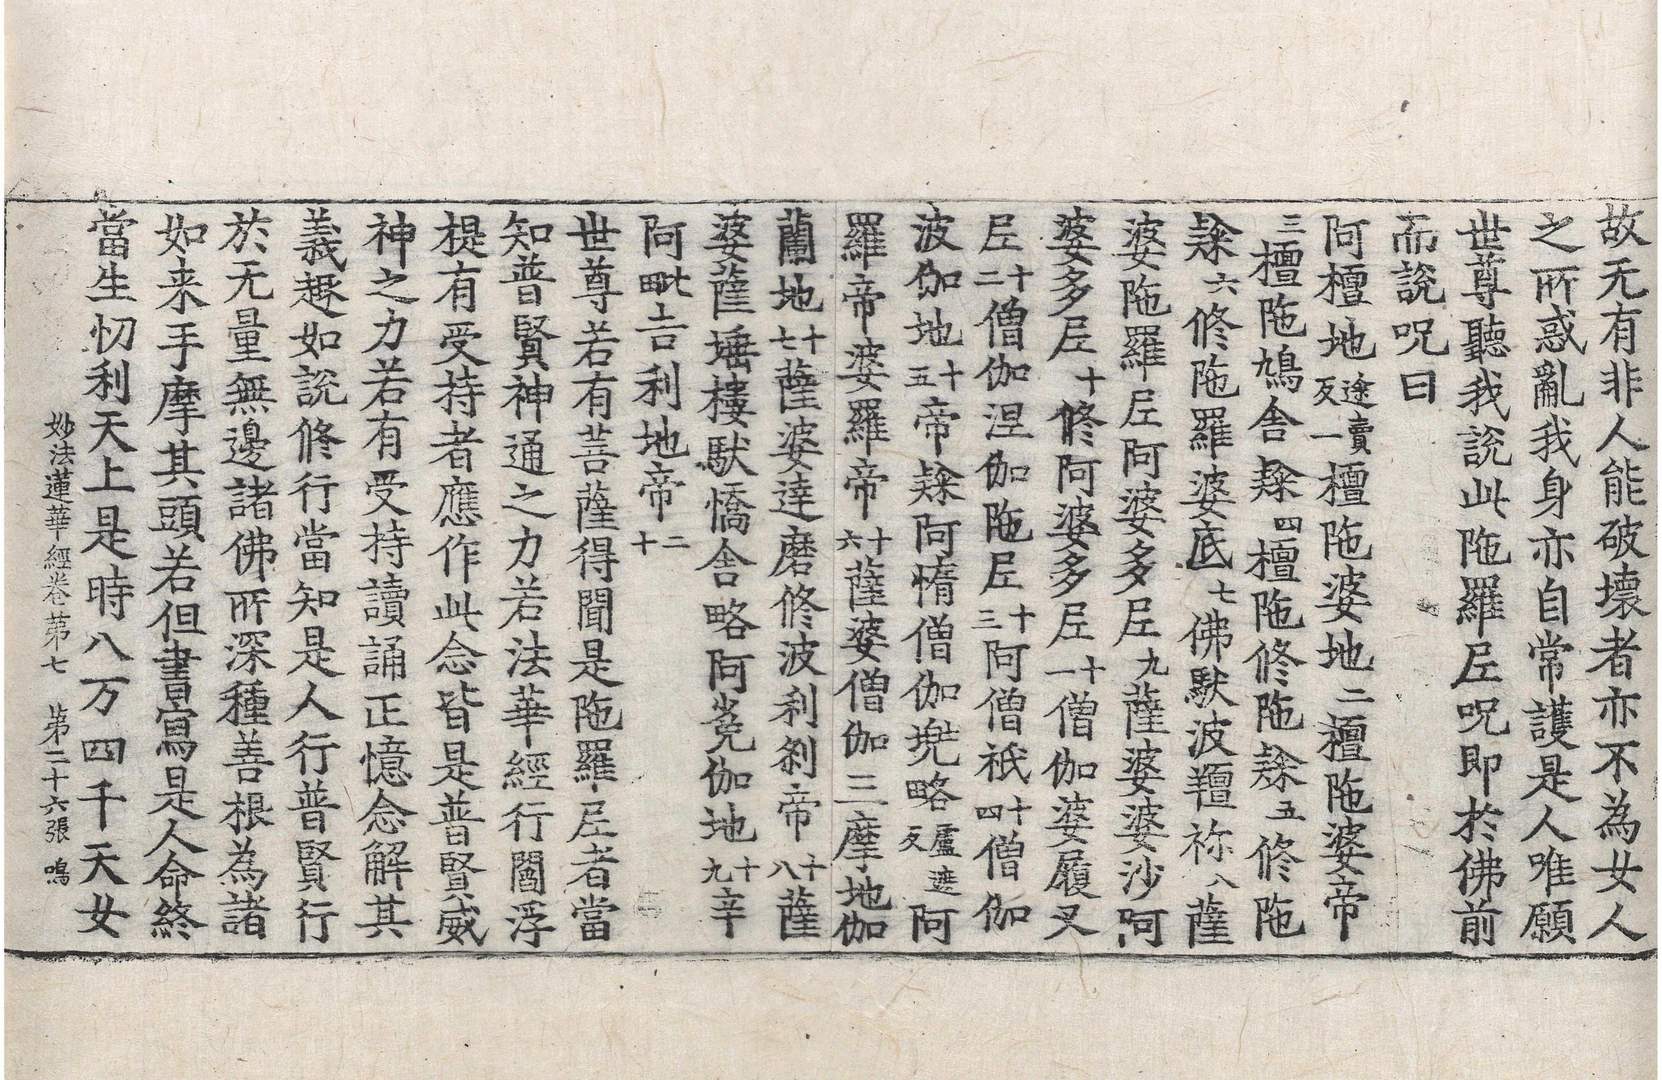 故无有非人能破壞者亦不為女人
之所惑亂我身亦自常護是人唯願
世尊聽我說此陁羅尼呪即於佛前
而說呪曰
阿檀地途賣反一檀陁婆地二檀陁婆帝
三檀陁鳩舍隸四檀陁修陁隸五修陁
隸六修陁羅婆底七佛馱波羶祢八薩
婆陁羅尼阿婆多尼九薩婆婆沙阿
婆多尼十修阿婆多尼十一僧伽婆履叉
尼十二僧伽涅伽陁尼十三阿僧祇十四僧伽
波伽地十五帝隸阿惰僧伽兠略盧遮反阿
羅帝婆羅帝十六薩婆僧伽三摩地伽
蘭地十七薩婆達磨修波利刹帝十八薩
婆薩埵樓馱憍舍略阿㝹伽地十九辛
阿毗吉利地帝二十
世尊若有菩薩得聞是陁羅尼者當
知普賢神通之力若法華經行閻浮
提有受持者應作此念皆是普賢威
神之力若有受持讀誦正憶念解其
義趣如說修行當知是人行普賢行
於无量無邊諸佛所深種善根為諸
如来手摩其頭若但書寫是人命終
當生忉利天上是時八万四千天女
妙法蓮華經卷第七 第二十六張 鳴